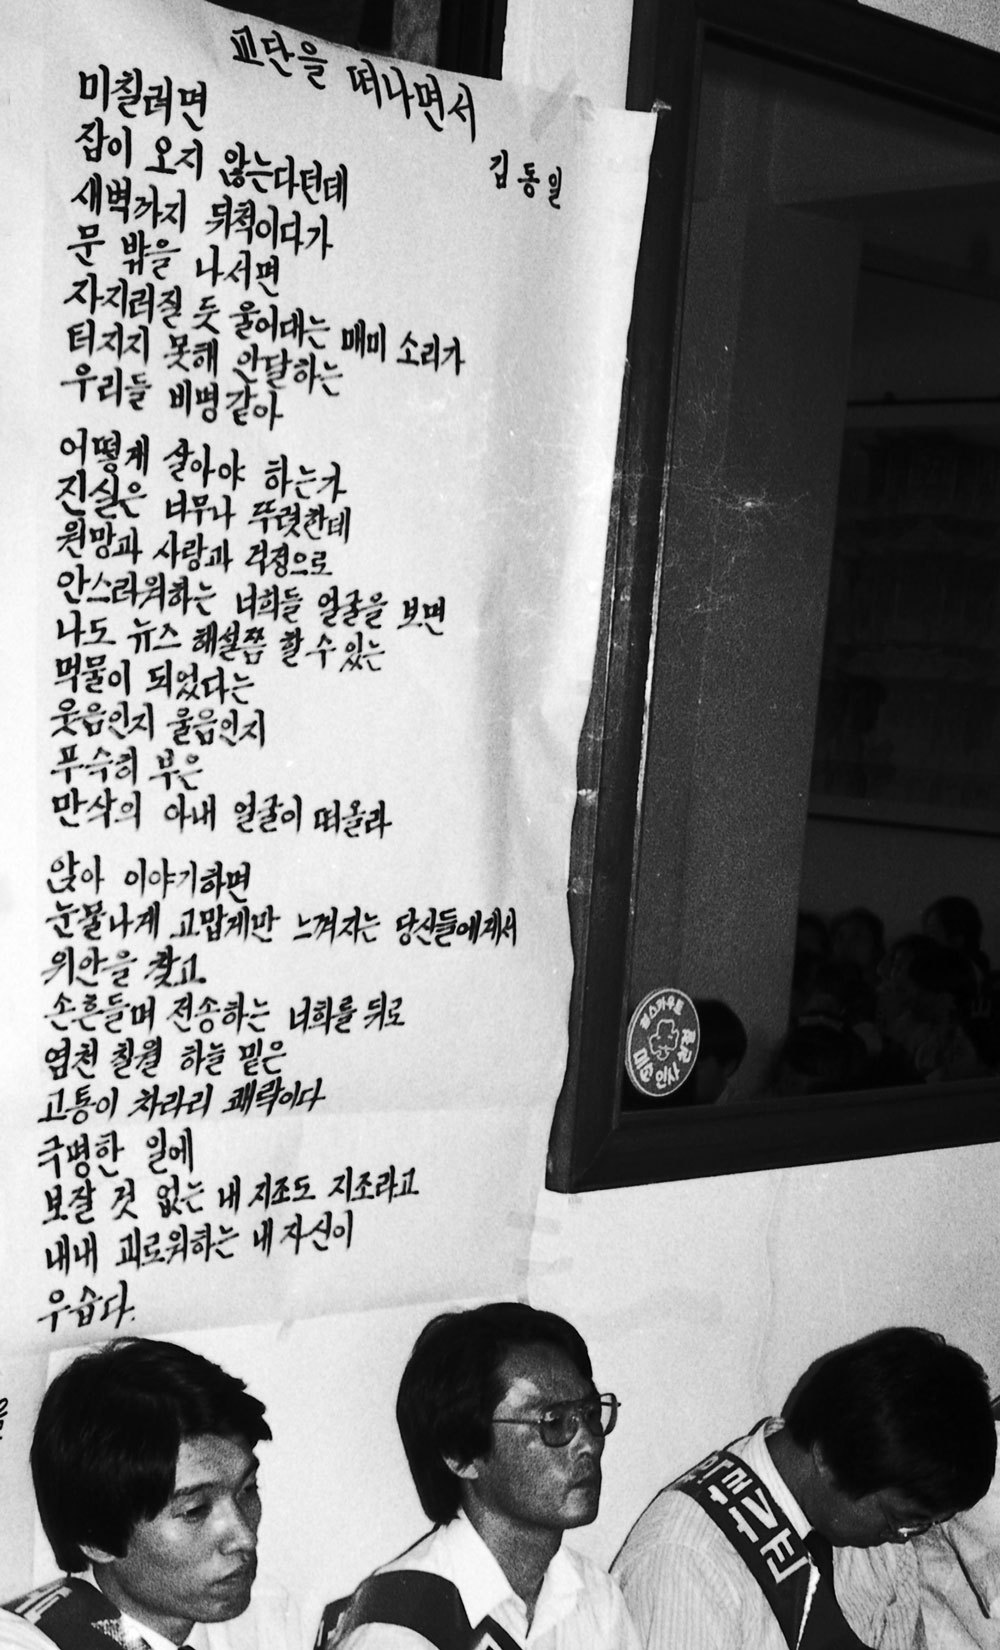 교단을 떠나면서
김동일
미칠려면
잡이 오지 않는다던데
새벽까지 뒤척이다가
문 밖을 나서면
자지러질 듯 울어대는 매미 소리가
터지지 못해 안달하는
우리들 비명같아
어떻게 살아야 하는가
진실은 너무나 뚜렷한데
원망과 사랑과 걱정으로
안스러워하는 너희들 얼굴을 보면
나도 뉴스 해설쯤 할 수 있는
먹물이 되었다는
웃음인지 울음인지
푸숙히 부은
만삭의 아내 얼굴이 떠올라
앉아 이야기하면
눈물나게 고맙게만 느껴지는 당신들에게서
위안을 찾고
손흔들며 전송하는 너희를 뒤로
염천 칠월 하늘 밑은
고통이 차라리 쾌락이다
극명한 일에
보잘 것 없는 내 지조도 지조라고
내내 괴로워하는 내 자신이
우습다.
걸스카우트
미소 인사
을